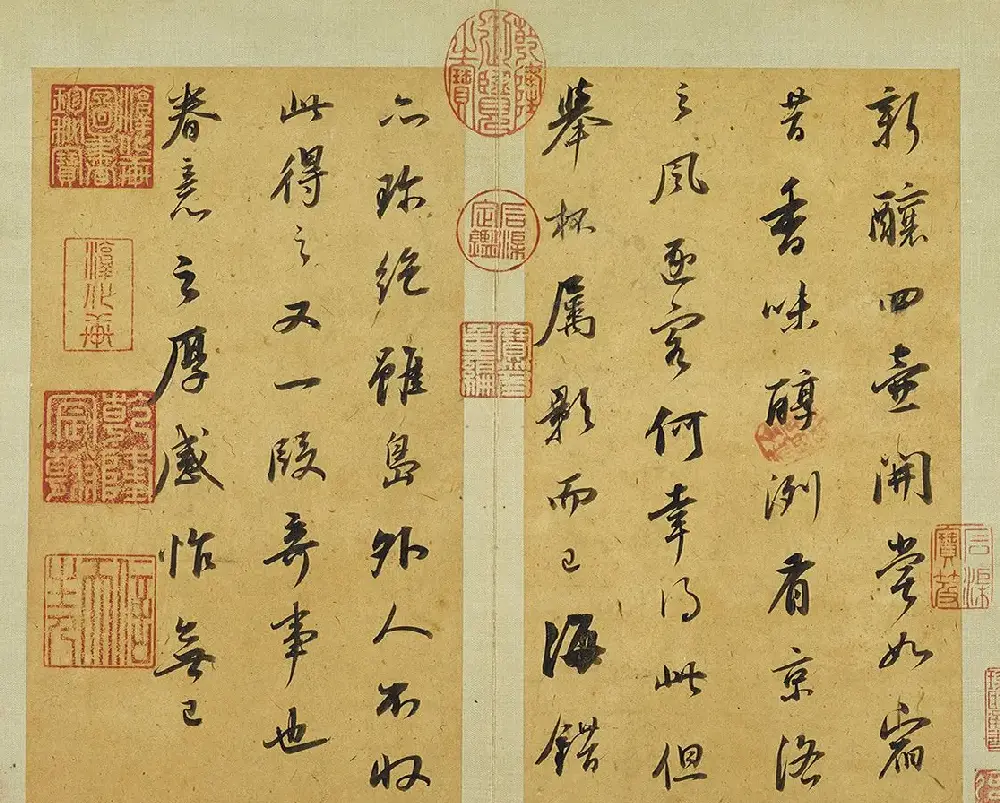 新釀四壺開嘗如宿
昔香味醇冽有京洛
之風逐客何幸得此但
舉杯屬影而已海錯
亦珍絕雖島外人不收
此得之又一段奇事也
眷意之厚感怍無已
石渠寶笈
乾隆御覽之寶
石渠定鑑
寶笈重編
淳化軒圖書珍秘寶
淳化軒
乾隆宸翰
信天主人